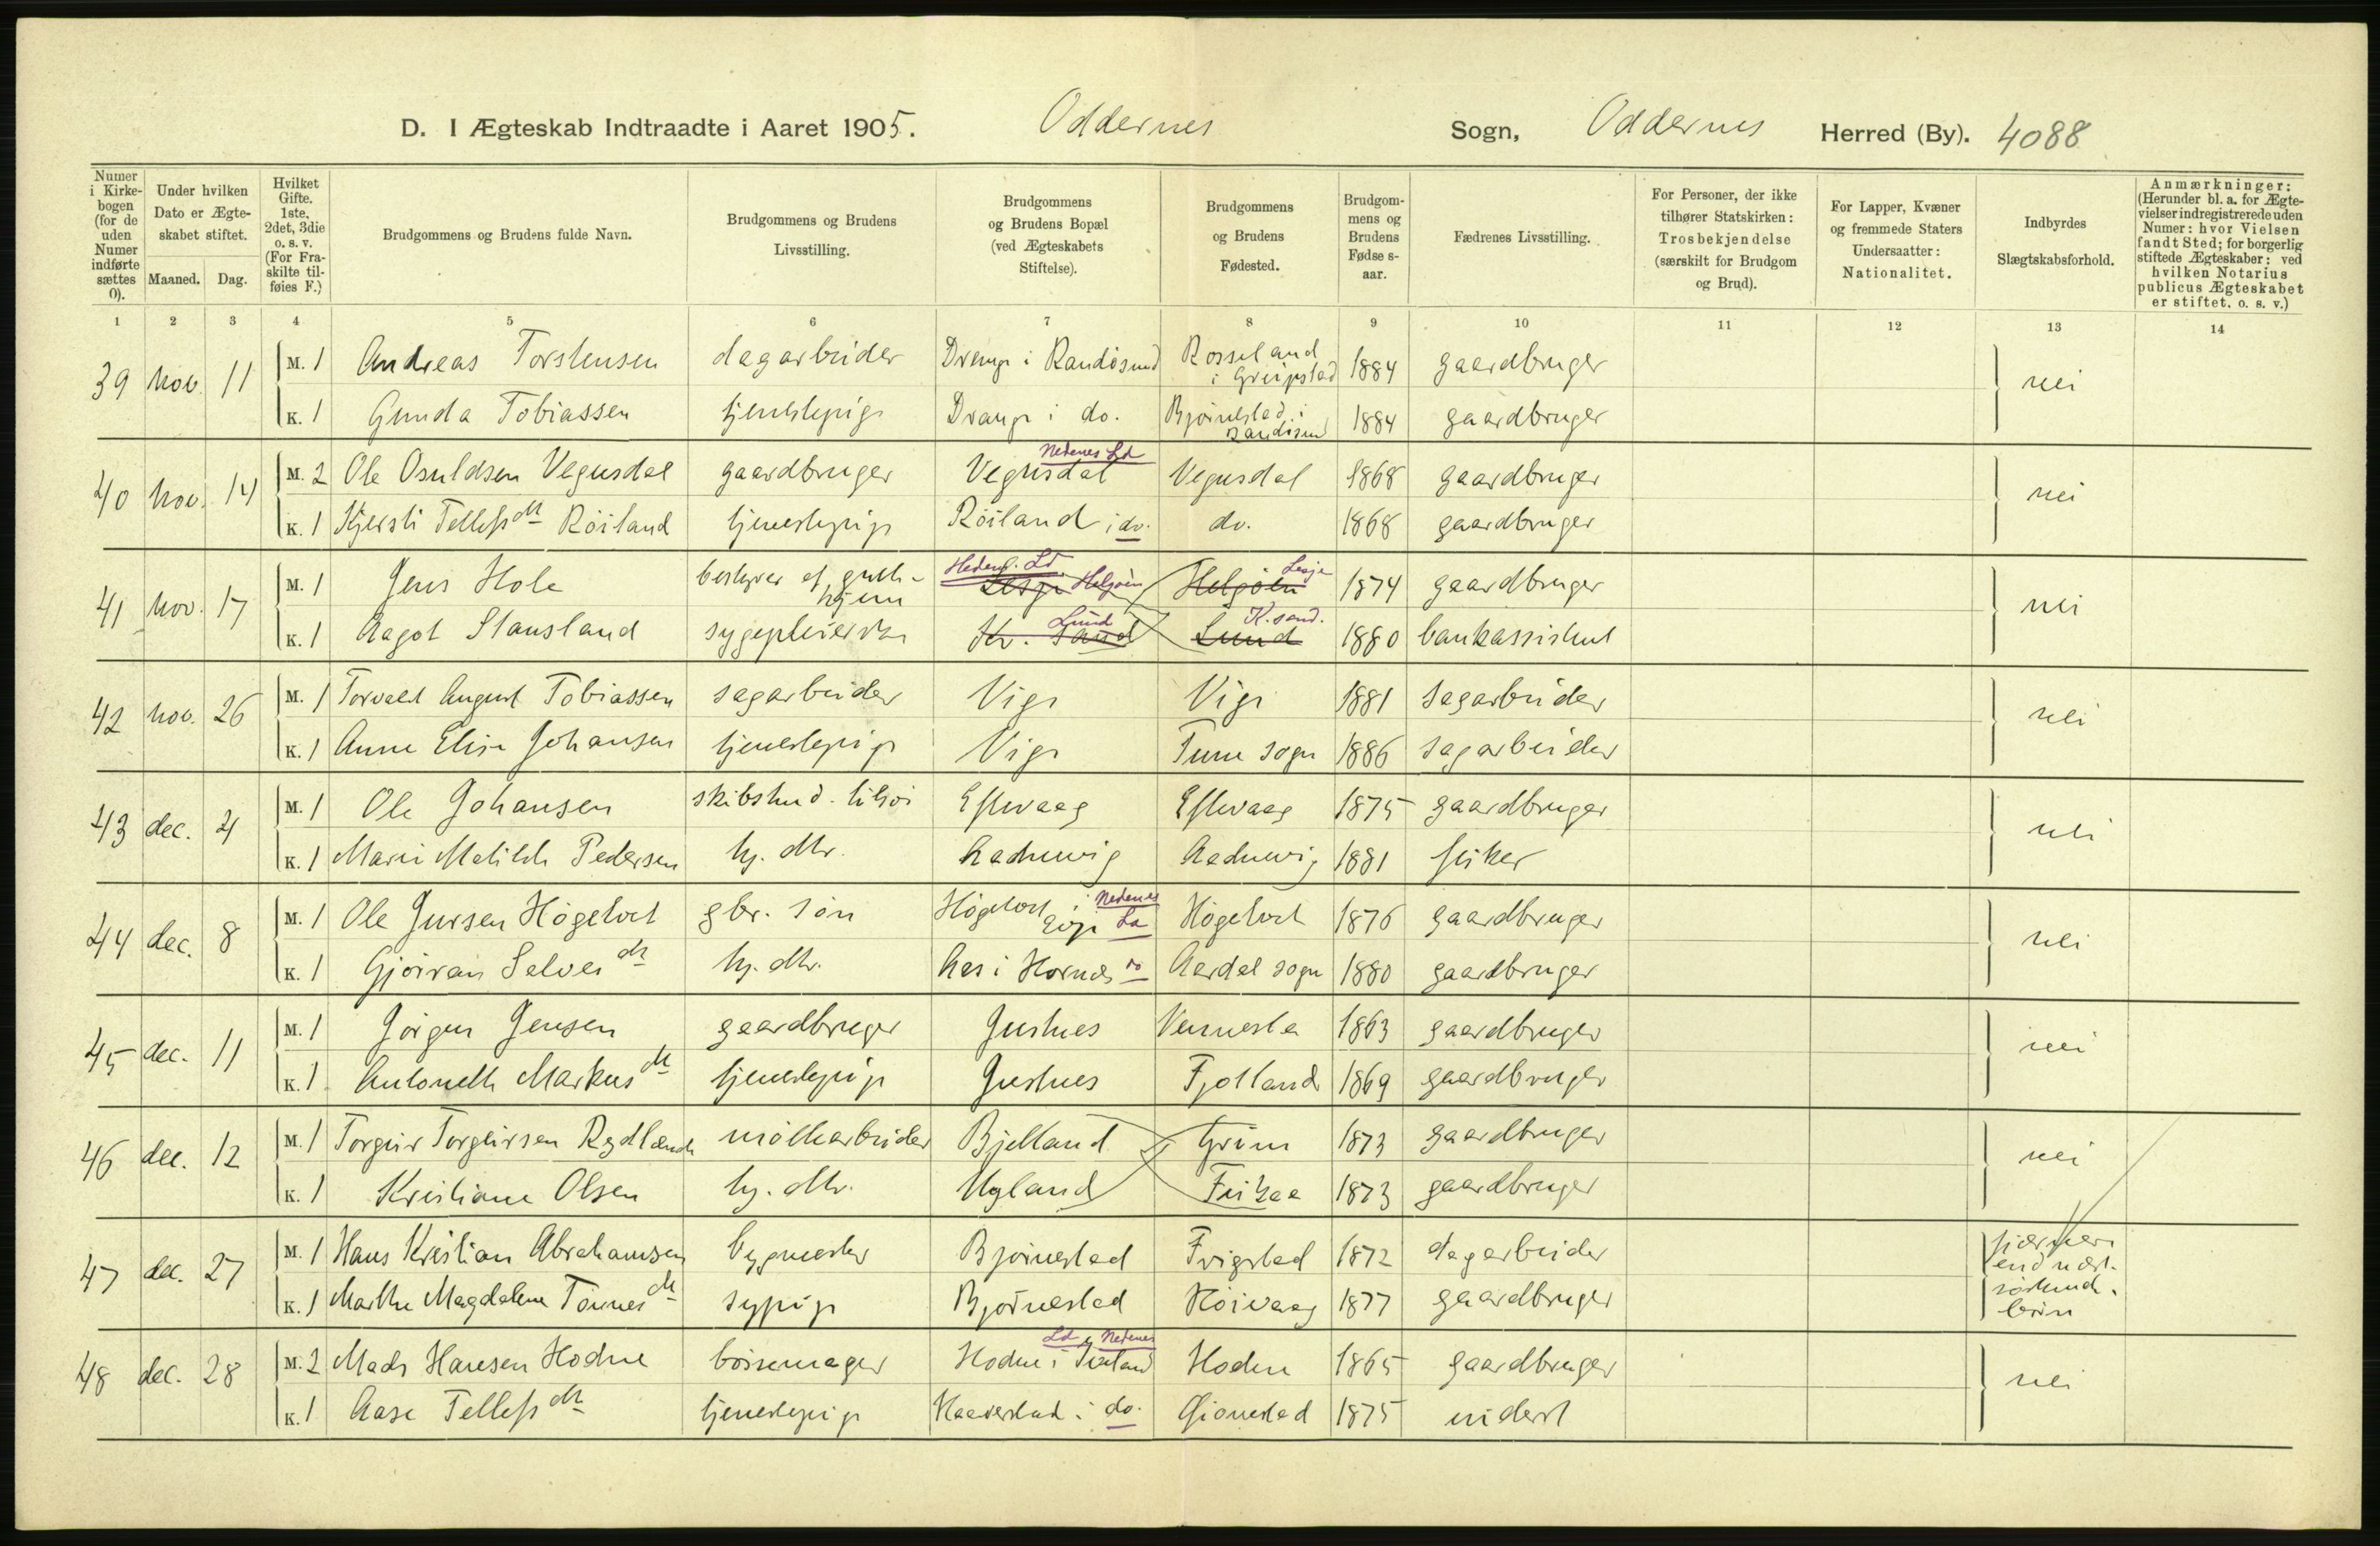 D. I Ægteskab Indtraadte i Aaret 1905. Oddernes Sogn, Oddernes Herred (By). 4088
Numer i Kirkebogen (for de uden Numer indførte sættes 0).
Under hvilken Dato er Ægteskabet stiftet.
Maaned. Dag.
Hvilket Gifte. 1ste, 2det, 3die o. s. v. (For Fraskilte tilføies F.)
Brudgommens og Brudens fulde Navn.
Brudgommens og Brudens Livsstilling.
Brudgommens og Brudens Bopæl (ved Ægteskabets Stiftelse).
Brudgommens og Brudens Fødested.
Brudgommens og Brudens Fødselsaar.
Fædrenes Livsstilling.
For Personer, der ikke tilhører Statskirken: Trosbekjendelse (særskilt for Brudgom og Brud).
For Lapper, Kvæner og fremmede Staters Undersaatter: Nationalitet.
Indbyrdes Slægtskabsforhold.
Anmærkninger: (Herunder bl. a. for Ægtevielser indregistrerede uden Numer: hvor Vielsen fandt Sted; for borgerlig stiftede Ægteskaber: ved hvilken Notarius publicus Ægteskabet er stiftet. o. s. v.)
1 2 3 4 5 6 7 8 9 10 11 12 13 14
39 nov. 11 M. 1 Andreas Torstensen dagarbeider i Randøsund Rosseland i Greipstad 1884 gaardbruger nei
K. 1 Gunda Tobiassen tjenestepige i do. Bjørnestad i Randøsund 1884 gaardbruger
40 nov. 14 M. 2 Ole Osuldsen Vegusdal gaardbruger Vegusdal Nedenes Ld Vegusdal 1868 gaardbruger nei
K. 1 Kjersti Tellefsdtr Röiland tjenestepige Röiland i do. do. 1868 gaardbruger
41 nov. 17 M. 1 Jens Hole bestyrer af gutte-hjem Hedem. Ld. Lesje Helgøen Helgöen Lesje 1874 gaardbruger nei
K. 1 Aagot Stausland sygepleierske Kr. sand Lund Lund K.sand. 1880 bankassistent
42 nov. 26 M. 1 Torvald August Tobiassen sagarbeider Vige Vige 1881 sagarbeider nei
K. 1 Anne Elise Johansen tjenestepige Vige Tune sogn 1886 sagarbeider
43 dec. 4 M. 1 Ole Johansen skibstmd. Eftevaag Eftevaag 1875 gaardbruger nei
K. 1 Marie Matilde Pedersen hj. dtr. 1881 fisker
44 dec. 8 M. 1 Ole Jursen Högetvet gbr. søn Högetvet i Evje Nedenes Ld Högetvet 1876 gaardbruger nei
K. 1 Gjöran Selvesdtr hj. dtr. Aas i Hornnes do Aardal sogn 1880 gaardbruger
45 dec. 11 M. 1 Jörgen Jensen gaardbruger Justnes Vennesla 1863 gaardbruger nei
K. 1 Antonette Markusdtr tjenestepige Justnes Fjotland 1869 gaardbruger
46 dec. 12 M. 1 Torgeir Torgeirsen Rydland möllearbeider Bjelland Grim 1873 gaardbruger nei
K. 1 Kristiane Olsen hj. dtr. Uyland Feikaa 1873 gaardbruger
47 dec. 27 M. 1 Hans Kristian Abrahamsen bygmester Bjørnestad Frigstad 1872 dagarbeider fjærnere
end næst-
söskende-
börn
K. 1 Marthe Magdalene Tönnesdtr sypige Bjørnestad Höivaag 1877 gaardbruger
48 dec. 28 M. 2 Mads Hansen Hodne bössemager Hodne i Iveland Ld Nedenes Hodne 1865 gaardbruger nei
K. 1 Aase Tellefsdtr tjenestepige i do. 1875 inderst